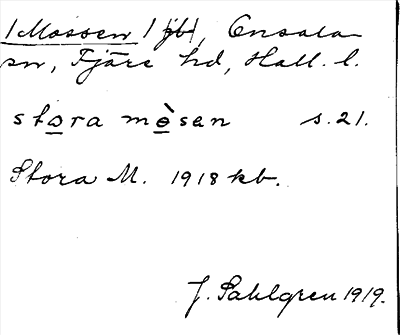 /Mossen/ jb/, Onsala
sn, Fjäre hd, Hall. l.
stora mòsen s. 21.
Stora M. 1918 kb.
J. Sahlgren 1919.